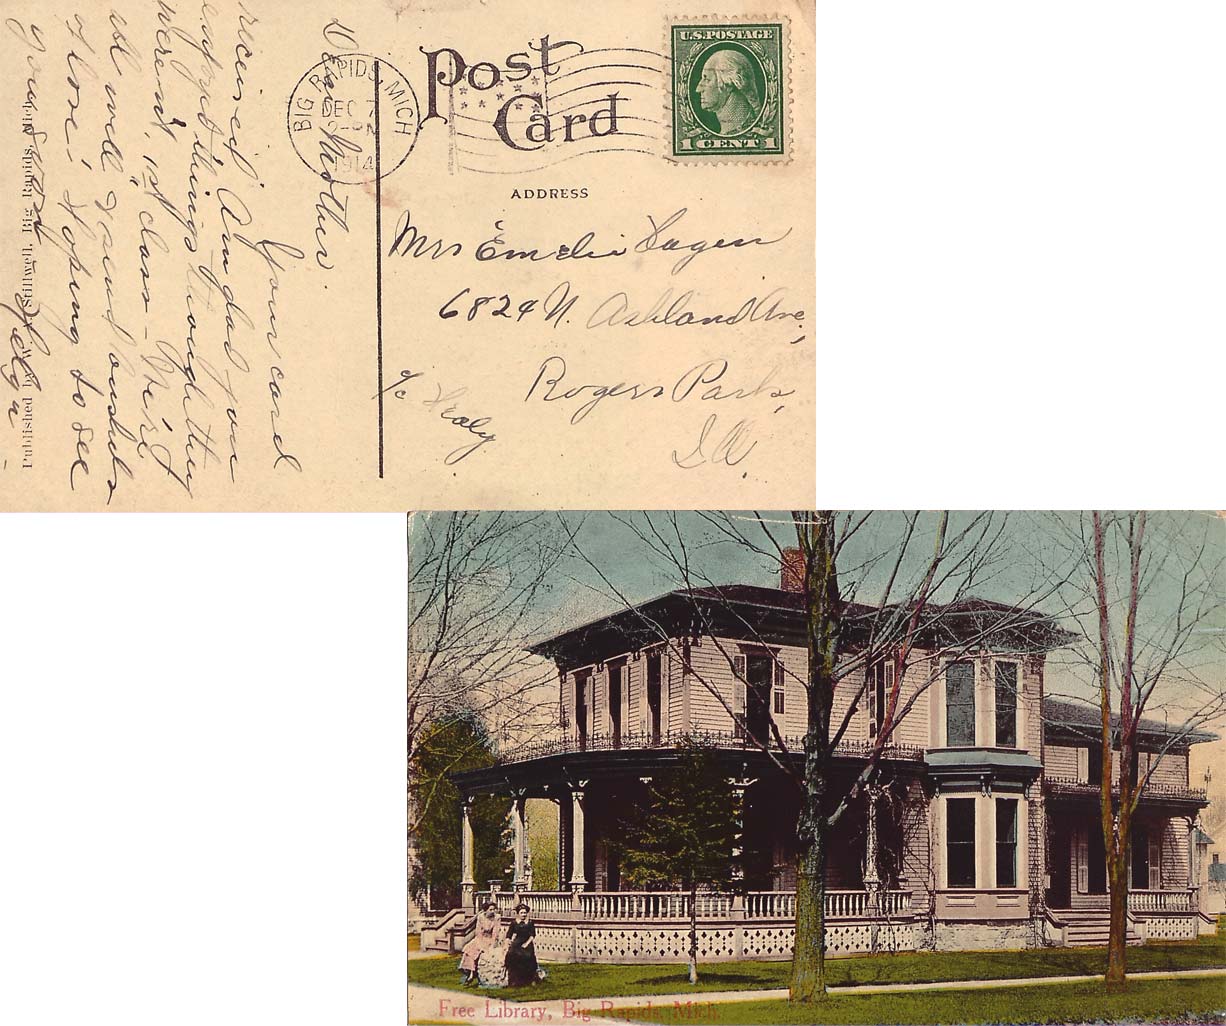 Post
Card
U.S. POSTAGE
1 CENT 1
BIG RAPIDS, MICH
DEC 7
1914
ADDRESS
Mrs Emelie Hagen
6824 N. Ashland Ave,
Rogers Park,
Ill.
c/o Healy
Dear Mother.
Your card
received. Am glad you
enjoyed things though they
weren't 1st class - We're
all well & send ousels
of love. Hoping to see
you soon
Helga -
Published by W. Stillwell, Big Rapids, Mich.
Free Library, Big Rapids, Mich.